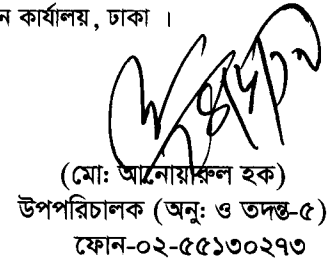 ন কার্যালয়, ঢাকা ।
(মো: আনোয়ারুল হক)
উপপরিচালক (অনু: ও তদন্ত-৫)
ফোন-০২-৫৫১৩০২৭৩